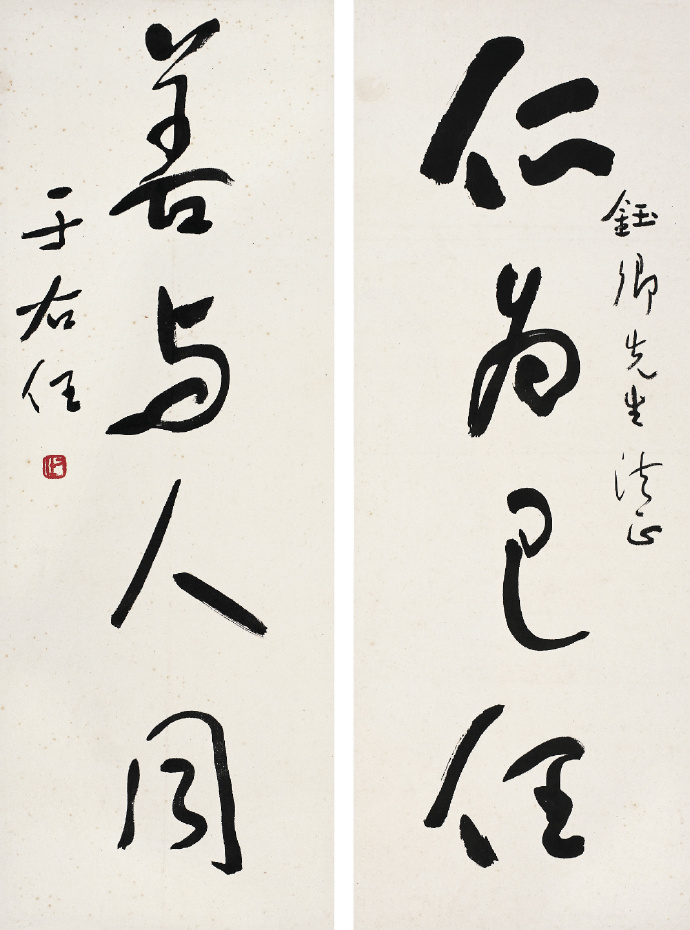 仁為己任
鈺卿先生法正
善与人同
于右任